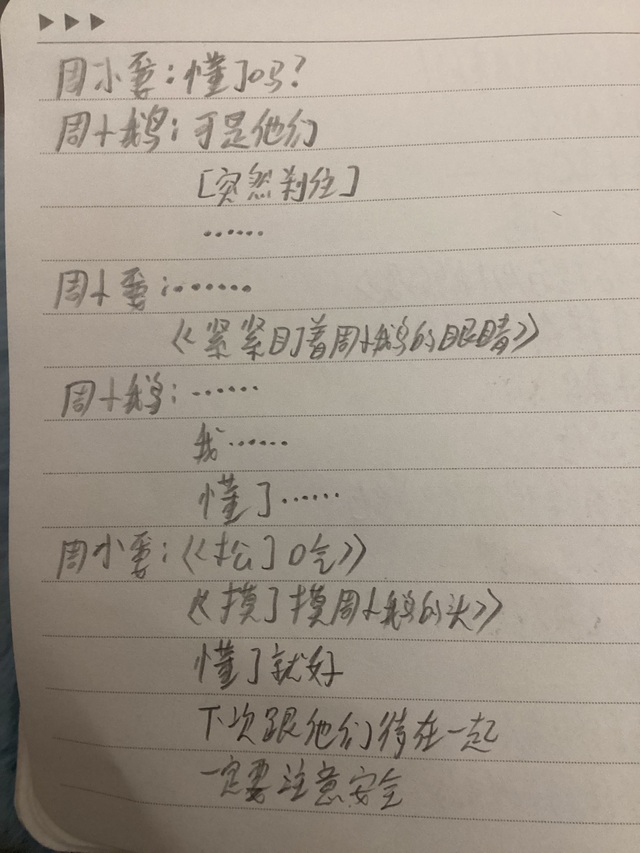 周小要：懂了吗？
周小鹅：可是他们
[突然刹住]
……
周小要：……
《紧紧盯着周小鹅的眼睛》
周小鹅：……
我……
懂了……
周小要：《松了口气》
《摸了摸周小鹅的头》
懂了就好
下次跟他们待在一起
一定要注意安全